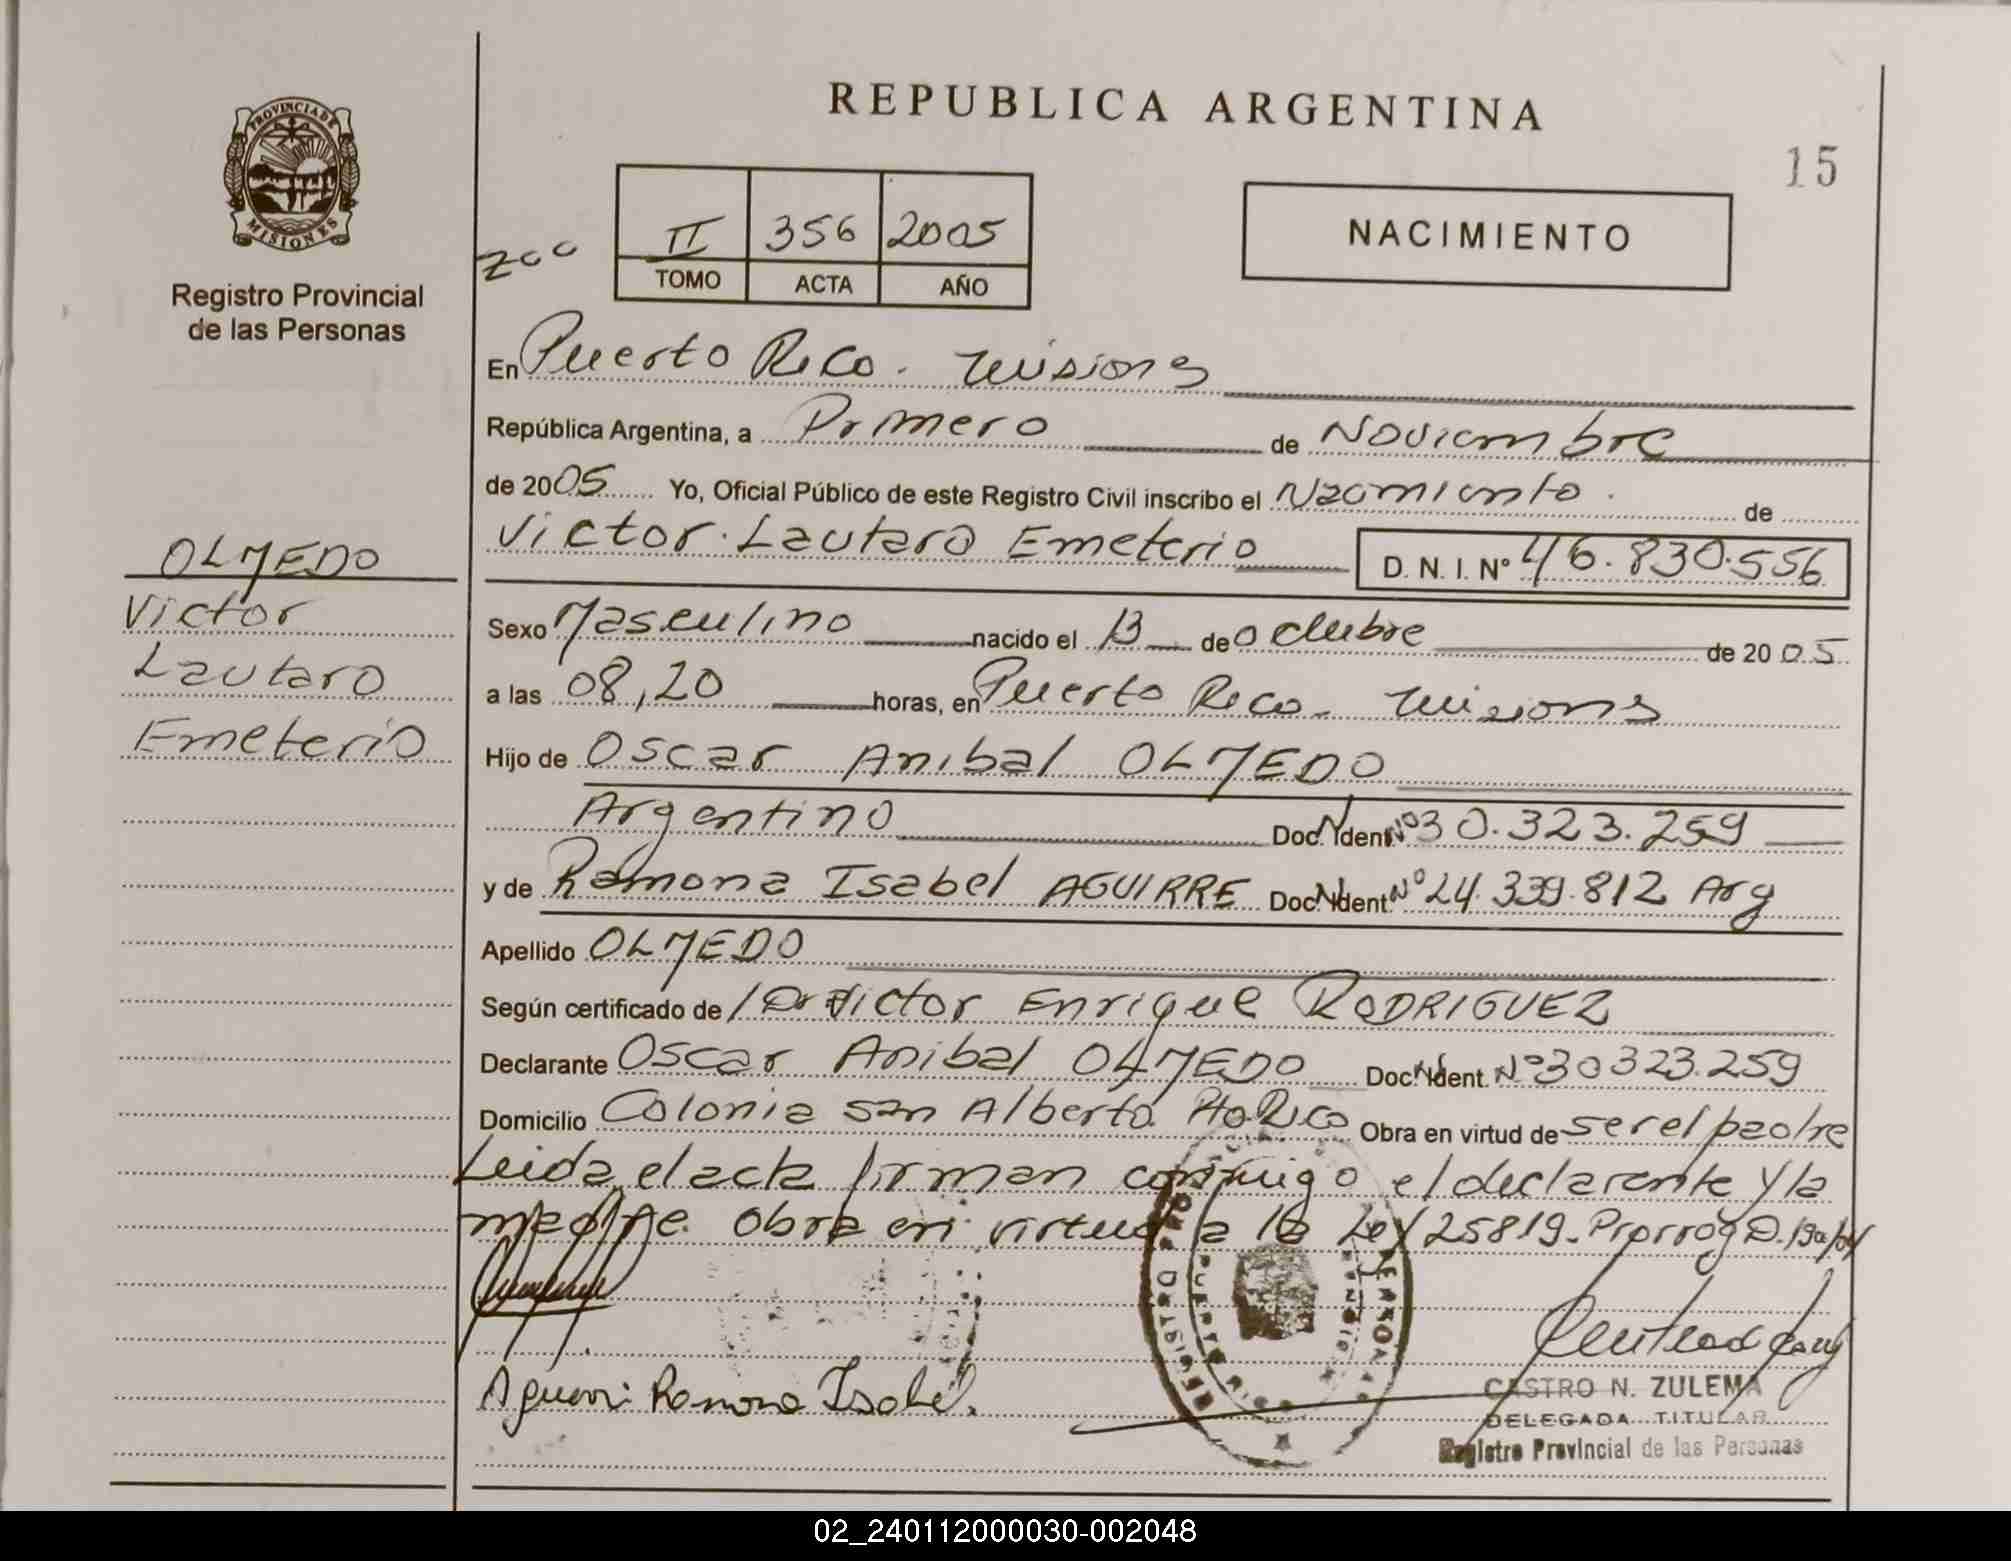 REPUBLICA ARGENTINA
15
PROVINCIA DE
MISIONES
Registro Provincial
de las Personas
200
II 356 2005
TOMO ACTA AÑO
NACIMIENTO
En Puerto Rico. Misiones
República Argentina, a Primero de Noviembre
de 2005 Yo, Oficial Público de este Registro Civil inscribo el Nacimiento. de
Victor Lautaro Emeterio D. N. I. N° 46.830.556
OLMEDO
Victor
Lautaro
Emeterio
Sexo Masculino nacido el 13 de octubre de 2005
a las 08,20 horas, en Puerto Rico - Misiones
Hijo de Oscar Anibal OLMEDO
Argentino Doc. Ident. N° 30.323.259
y de Ramona Isabel AGUIRRE Doc. Ident. N° 24.339.812 Arg
Apellido OLMEDO
Según certificado de Dr Victor Enrique RODRIGUEZ
Declarante Oscar Anibal OLMEDO Doc. Ident. N° 30323.259
Domicilio Colonia San Alberto. Pto Rico Obra en virtud de ser el padre
Leida el acta firman conmigo el declarante y la
madre. Obra en virtud a la Ley 25819. Prorrog D.
Aguirri Ramona Isabel.
REGISTRO PUERTO RICO
CASTRO N. ZULEMA
DELEGADA TITULAR
Registro Provincial de las Personas
02_240112000030-002048